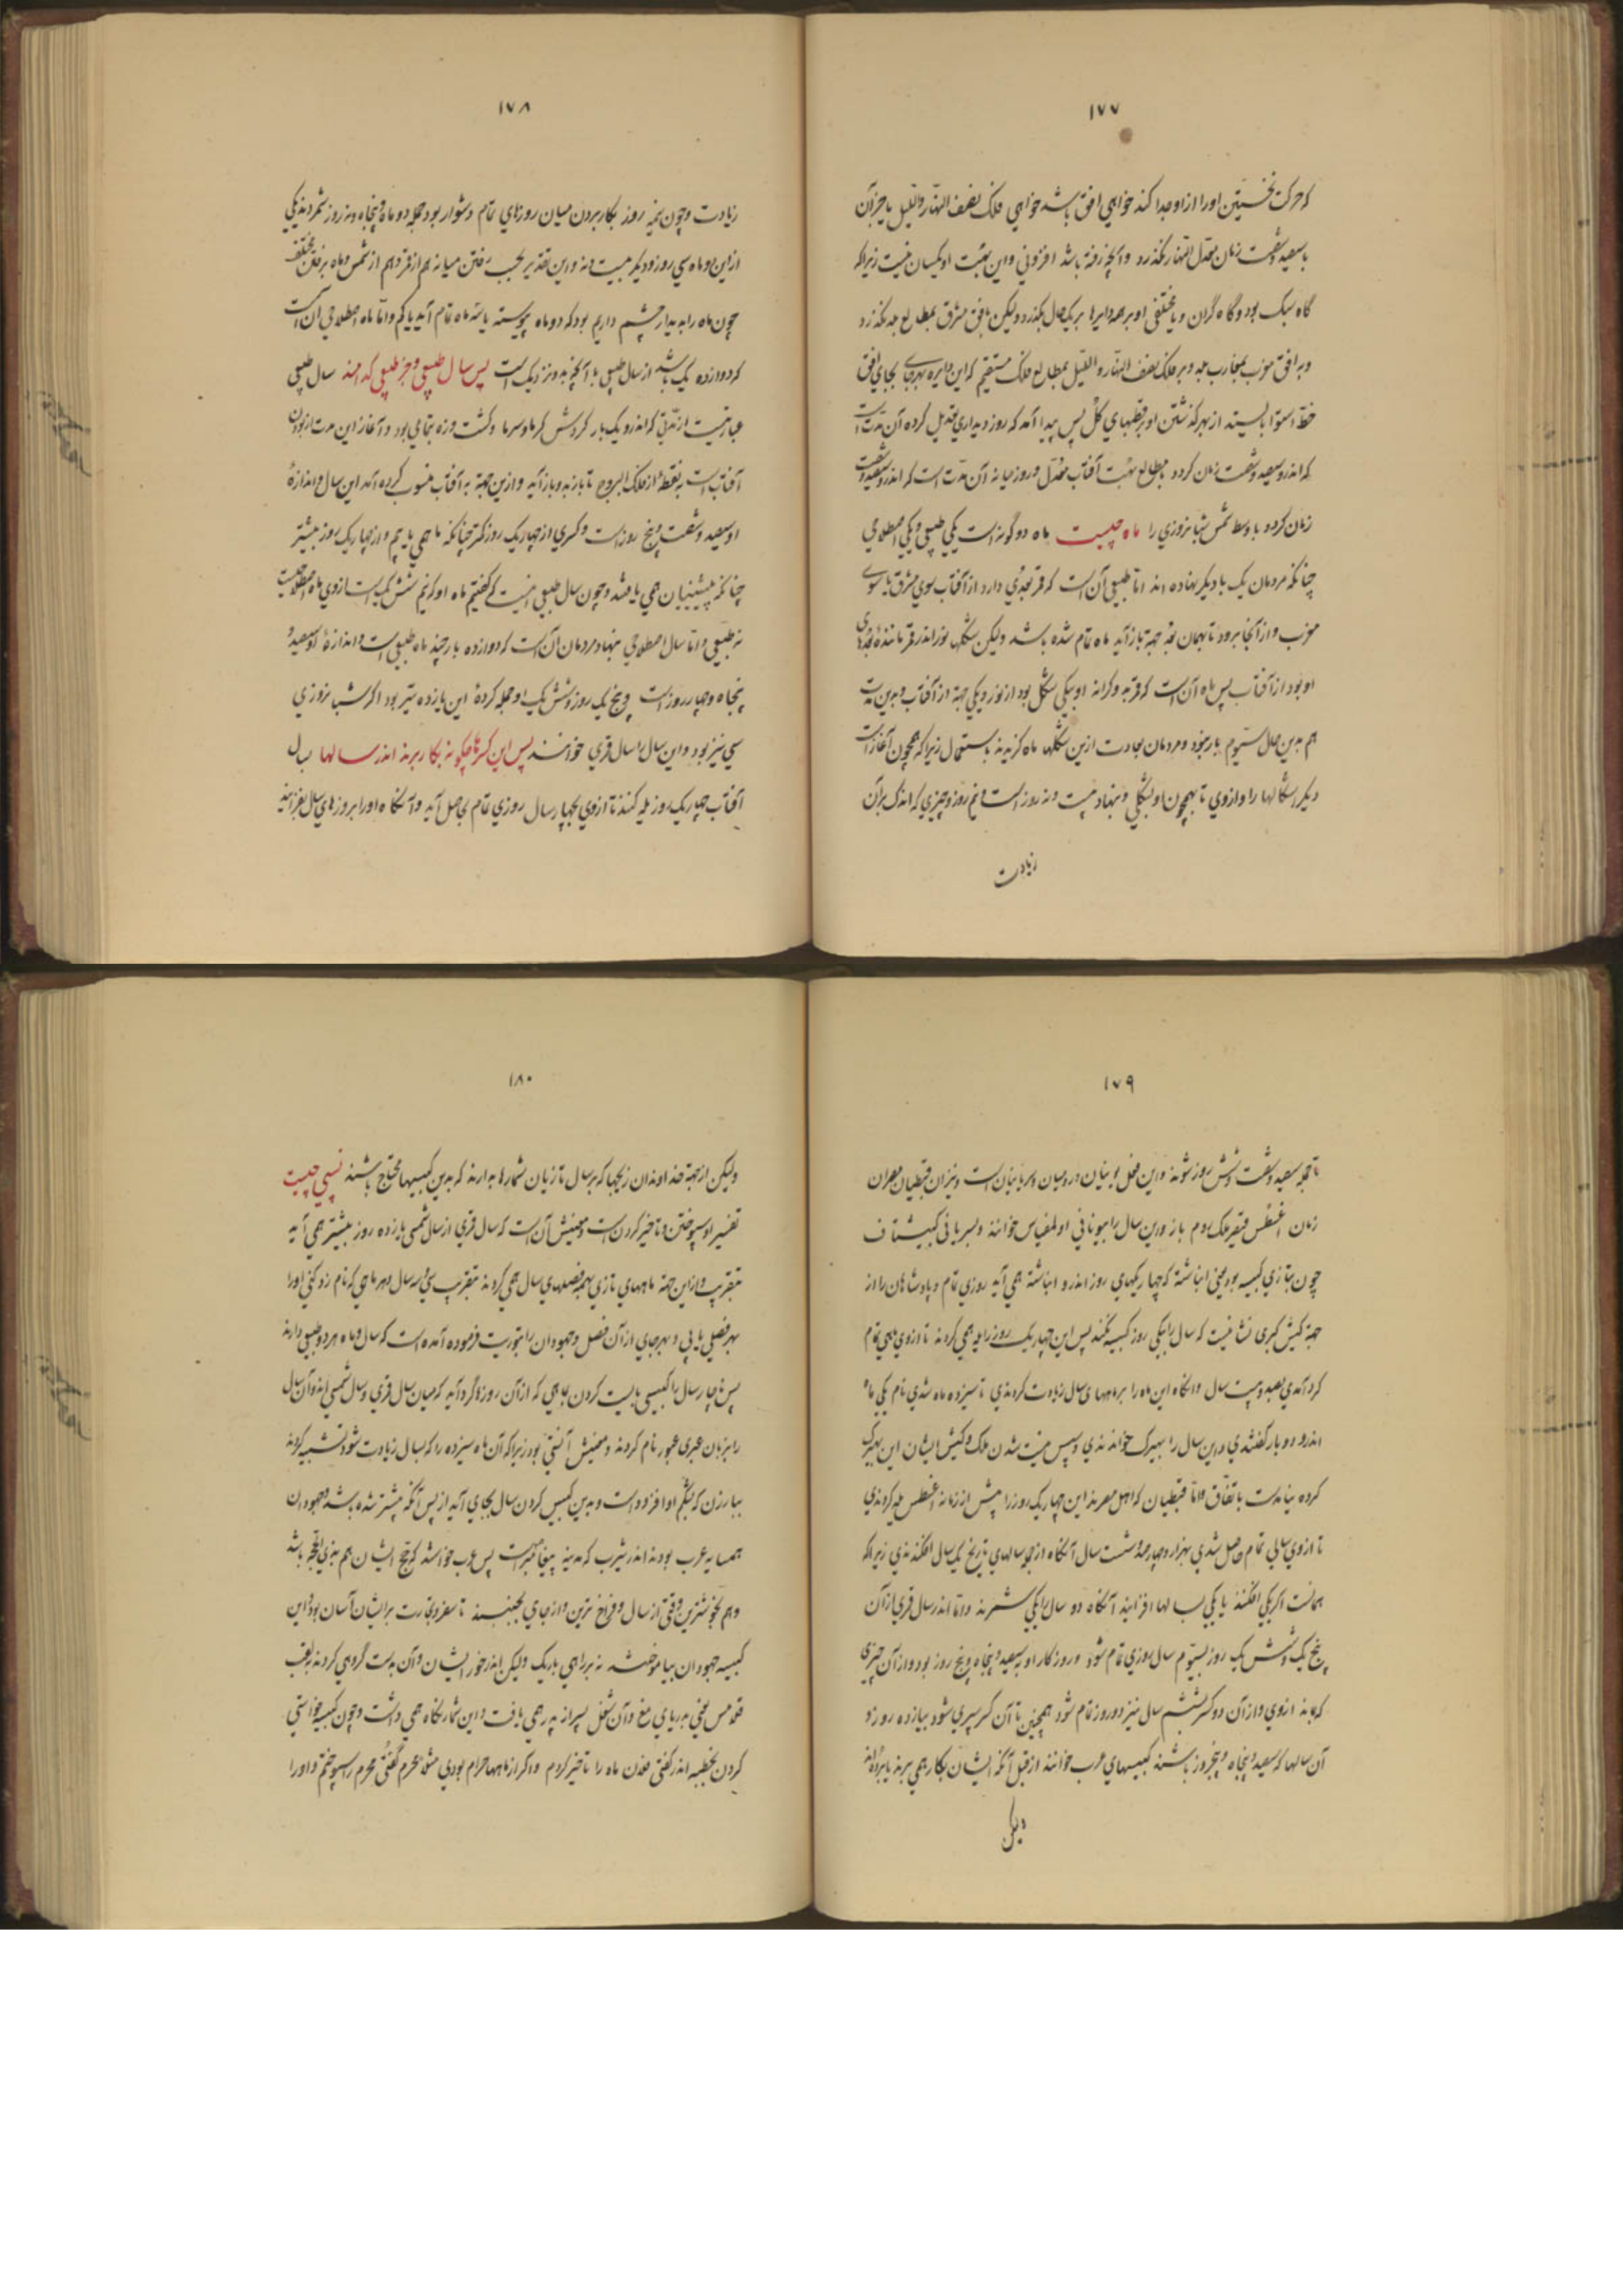 ۱۷۷
که حرکت نخستین او را از او جدا کند خواهی افق باشد خواهی فلک نصف النهار واللیل یا جز آن
با سیصد و شصت زمان معدل النهار بگذرد و آنچه رفته باشد افزونی و این بهت او یکسان نیست زیرا که
گاه سبک بود و گاه گران و با مختلفی او بر همه دایرها بر یک حال نگذرد ولیکن بافق مشرق بمطالع جمله بگذرد
و بر افق مغرب بمغارب جمله و بر فلک نصف النهار و اللیل بمطالع فلک مستقیم که این دایره بهر جای بجای افق
خط استوا بایستد از بهر گذشتن او بر قطبهای کل پس پیدا آمد که روز و دیداری تعدیل کرده آن مدت است
که اندرو سیصد و شصت زمان گردد با مطالع بهت آفتاب معدل و روز میانه آن مدت است که اندرو سیصد و شصت
زمان گردد با وسط شمس شبانروزی را ماه چیست ماه دو گونه است یکی طبیعی و یکی اصطلاحی
چنانکه مردمان یک با دیگر نهاده اند اما طبیعی آن است که قمر بعدی دارد از آفتاب سوی مشرق یا سوی
مغرب و از آنجا برود تا بهمان بعد جهة باز آید ماه تمام شده باشد ولیکن شکلها نور اندر قمر مانندهٔ بعدهای
او بود از آفتاب پس ماه آن است که قمر به و کرانه او بیکی شکل بود از نور و یکی جهة از آفتاب و بدین مدت
هم بدین حال سیوم بار بخود و مردمان بعادت ازین شکلها ماه گزیدند باستعمال زیرا که همچون آغاز است
دیگر اشکالها را و از وی تا بهمچون او بشکلی و بنهاد بیست و نه روز است و نیم روز و چیزی که اندک بر آن
زیادت
۱۷۸
زیادت و چون نیمه روز بکار بردن میان روزهای تمام دشوار بود جمله دو ماه پنجاه و نه روز شمردند یکی
ازاین دو ماه سی روز و دیگر بیست و نه و این تقدیر بحسب رفتن میانه هم از قمر و هم از شمس و اما برفتن مختلف
چون ماه را بدیدار چشم داریم بود که دو ماه پیوسته یا سه ماه تمام آید یا کم و اما ماه اصطلاحی آن است
که دوازده یک باشد از سال طبیعی یا آنچه بدو نزدیک است پس سال طبیعی و جز طبیعی کدامند سال طبیعی
عبارتیست از مدتی که اندرو یک بار گردش گرما و سرما و کشت و زه بتمامی بود و آغاز این مدت از بودن
آفتاب است بنقطهٔ از فلک البروج تا بازبدو باز آید و ازین جهة به آفتاب منسوب کرده آمد این سال و اندازهٔ
او سیصد و شصت و پنج روز است و کسری از چهار یک روز کمتر چنانکه ما همی یابیم و از چهار یک روز بیشتر
چنانکه پیشینیان همی یافتند و چون سال طبیعی اینست که گفتیم ماه او که نیم شش یک است از وی ماه اصطلاحیست
نه طبیعی و اما سال اصطلاحی بنهاد مردمان آن است که دوازده بار چند ماه طبیعی است و اندازهٔ او سیصد و
پنجاه و چهار روز است و پنج یک روز و شش یک او جمله کردهٔ این یازده تیر بود اگر شبانروزی
سی تیر بود و این سال را سال قمری خوانند پس این کسرها چگونه بکار برند اندر سالها سال
آفتاب چهار یک روز یله کنند تا از وی بچهار سال روزی تمام حاصل آید و آنگاه او را بروزهای سال بفزایند
۱۷۹
تا جمله سیصد و شصت و شش روز شوند و این فعل یونیان و رومیان و سریانیان است و نیز از آن قبطیان مصر از آن
زمان اغسطس قیصر ملک روم باز و این سال را بیونانی اولمفیاس خوانند و بسریانی کبیشتا ف
چون بتازی کبیسه بود یعنی انباشته که چهار یکهای روز اندرو انباشته همی آید روزی تمام و پادشاهان را از
جهة کیش گبری نشایست که سال را بیکی روز کبیسه بکنند پس این چهار یک روز را یله همی کردند تا از وی ماهی تمام
گرد آمدی بصد و بیست سال و آنگاه این ماه را بر ماههای سال زیادت کردندی تا سیزده ماه شدی نام یکی ماه
اندرو دو بار گفتندی و این سال را بهیزک خواندندی و سپس نیست شدن ملک و کیش ایشان این بهیزک
کرده نیامدست باتفاق و اما قبطیان که اهل مصرند این چهار یک روز را پیش از زمانه اغسطس یله کردندی
تا از وی سالی تمام حاصل شدی بهزار و چهارصد و شصت سال آنگاه از جمله سالهای تاریخ یک سال افکندندی زیرا که
همانست اگر یکی افکنند یا یکی بسالها افزایند آنگاه دو سال را یکی شمرند و اما اندر سال قمری از آن
پنج یک و شش یک روز بسیوم سال روزی تمام شود و روزگار او به سیصد و پنجاه و پنج روز بود و از آن چیزی
که بماند از وی و از آن دو کسر ششم سال نیز دو روز تمام شود همچنین تا آن کسر سپری شود بیازده روز و
آن سالها که سیصد و پنجاه و پنجروز باشند کبیسهای عرب خوانند از قبل آنکه ایشان بکار همی برند یا برده اند
ولیکن
۱۸۰
ولیکن از جهة خداوندان زیجها که بر سال تازیان شمارها بدارند که بدین کبیسها محتاج باشند نسی چیست
تفسیر او سپوختن و تاخیر کردن است و معنیش آن است که سال قمری از سال شمسی یازده روز پیشتر همی آید
بتقریب و از این جهة ماههای تازی بهمه فصلهای سال همی گردند بتقریب سی و سه سال و هر ماهی که نام زد کنی او را
بهر فصلی یابی و بهر جای از آن فصل و جهودان را بتوریت فرموده آمده است که سال و ماه هر دو طبیعی دارند
پس ناچار سال را کبیسی بایست کردن بماهی که از آن روزها گرد آید که میان سال قمری و سال شمسی اند و آن سال
را بزبان عبری عبور نام کردند و معنیش آبستنی بود زیرا که آن ماه سیزده را که بسال زیادت شود تشبیه کردند
ببار زن که بشکم او افزود است و بدین کبیس کردن سال بجای آید از پس آنکه پیشتر شده باشد و جهودان
همسایه عرب بودند اندر یثرب که مدینه پیغامبر است پس عرب خواستند که حج ایشان هم بذی الحجه باشد
و هم بخوشترین وقتی از سال و فراخ ترین و از جای نجنبند تا سفر و تجارت بر ایشان آسان بود این
کبیسه جهودان بیاموختند نه بر راهی باریک ولیکن اندرخور ایشان و آن بدست گروهی کردند بلقب
قلامس یعنی دریای مغ و آن شغل پسر از پدر همی یافت و این شمار نگاه همی داشت و چون کبیسه خواستی
کردن بخطبه اندر گفتی فلان ماه را تاخیر کردم و اگر از ماهها حرام بودی مثلا محرم گفتی محرم را سپوختم و او را